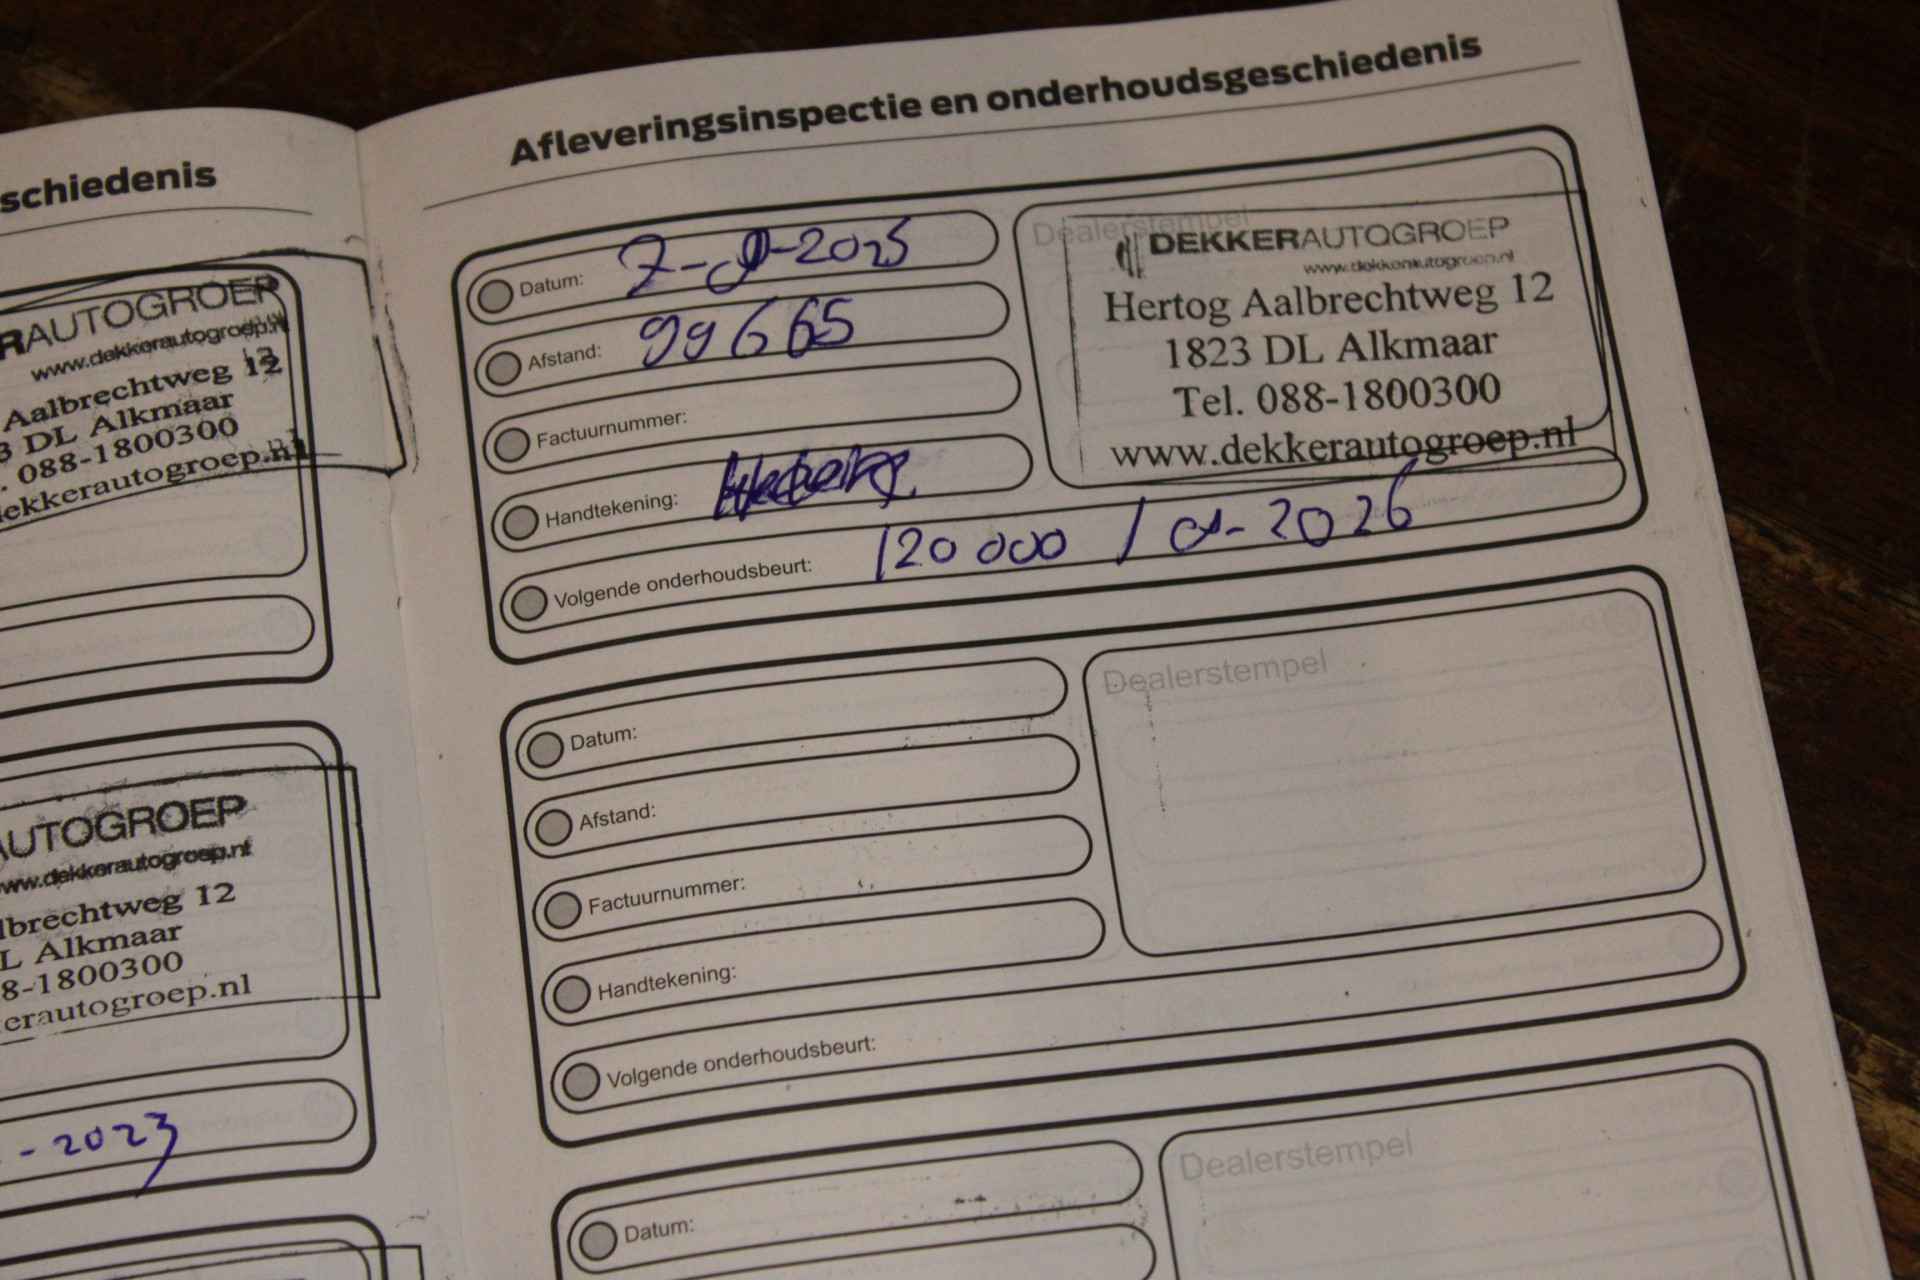 schiedenis
RAUTOGROEP
www.dekkerautogroep.nl
Aalbrechtweg 12
3 DL Alkmaar
. 088-1800300
ekkerautogroep.nl
AUTOGROEP
www.dekkerautogroep.nl
lbrechtweg 12
L Alkmaar
8-1800300
erautogroep.nl
- 2023
Afleveringsinspectie en onderhoudsgeschiedenis
Datum: 7-01-2025
Afstand: 99665
Factuurnummer:
Handtekening:
Volgende onderhoudsbeurt: 120 000 / 01-2026
Dealerstempel
DEKKERAUTOGROEP
www.dekkerautogroep.nl
Hertog Aalbrechtweg 12
1823 DL Alkmaar
Tel. 088-1800300
www.dekkerautogroep.nl
Datum:
Afstand:
Factuurnummer:
Handtekening:
Volgende onderhoudsbeurt:
Dealerstempel
Datum:
Dealerstempel